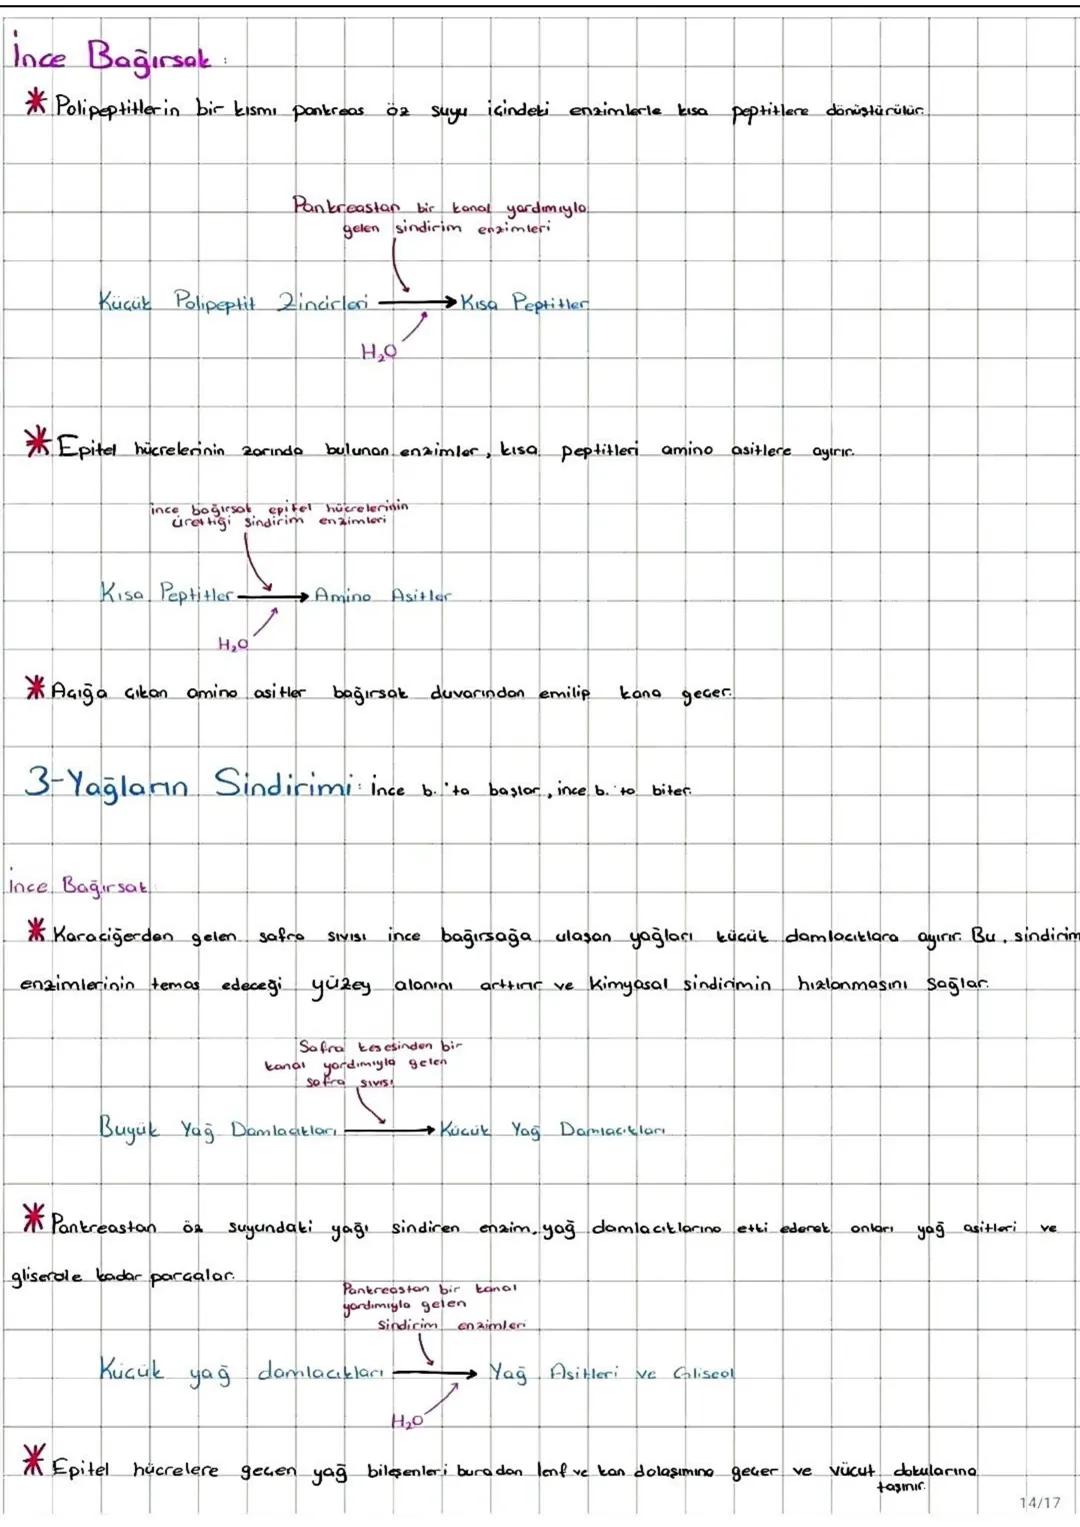 İnce Bağırsak:
* Polipeptitlerin bir kısmı pankreas öz suyu içindeki enzimlerle kısa peptitlere dönüştürülür.
Pankreastan bir kanal yardımıyla
gelen sindirim enzimleri
Küçük Polipeptit Zincirleri → Kısa Peptitler
H₂O
* Epitel hücrelerinin zarında bulunan enzimler, kısa peptitleri amino asitlere ayırır.
ince bağırsak epitel hücrelerinin
ürettiği sindirim enzimleri
Kısa Peptitler → Amino Asitler
H₂O
* Açığa çıkan amino asitler bağırsak duvarından emilip kana geçer.
3-Yağların Sindirimi: İnce b.'ta başlar, ince b.'ta biter.
İnce Bağırsak
* Karaciğerden gelen safra sıvısı ince bağırsağa ulaşan yağları küçük damlacıklara ayırır. Bu, sindirim
enzimlerinin temas edeceği yüzey alanını arttırır ve kimyasal sindirimin hızlanmasını sağlar.
Safra kesesinden bir
kanal yardımıyla gelen
safra sıvısı
Buyük Yağ Damlacıkları → Küçük Yağ Damlacıkları
* Pankreastan öz suyundaki yağı sindiren enzim, yağ damlacıklarına etki ederek onları yağ asitleri ve
gliserole kadar parçalar.
Pankreastan bir kanal
yardımıyla gelen
sindirim enzimleri
Küçük yağ damlacıkları → Yağ Asitleri ve Gliseol
H₂O
* Epitel hücrelere geçen yağ bileşenleri buradan lenf ve kan dolaşımına geçer ve vücut dokularına
taşınır.
14/17